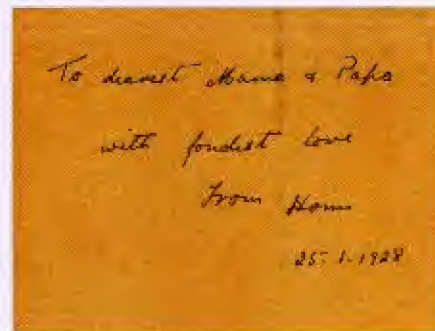 To dearest Mama & Papa
with fondest love
From Homi
25.1.1928